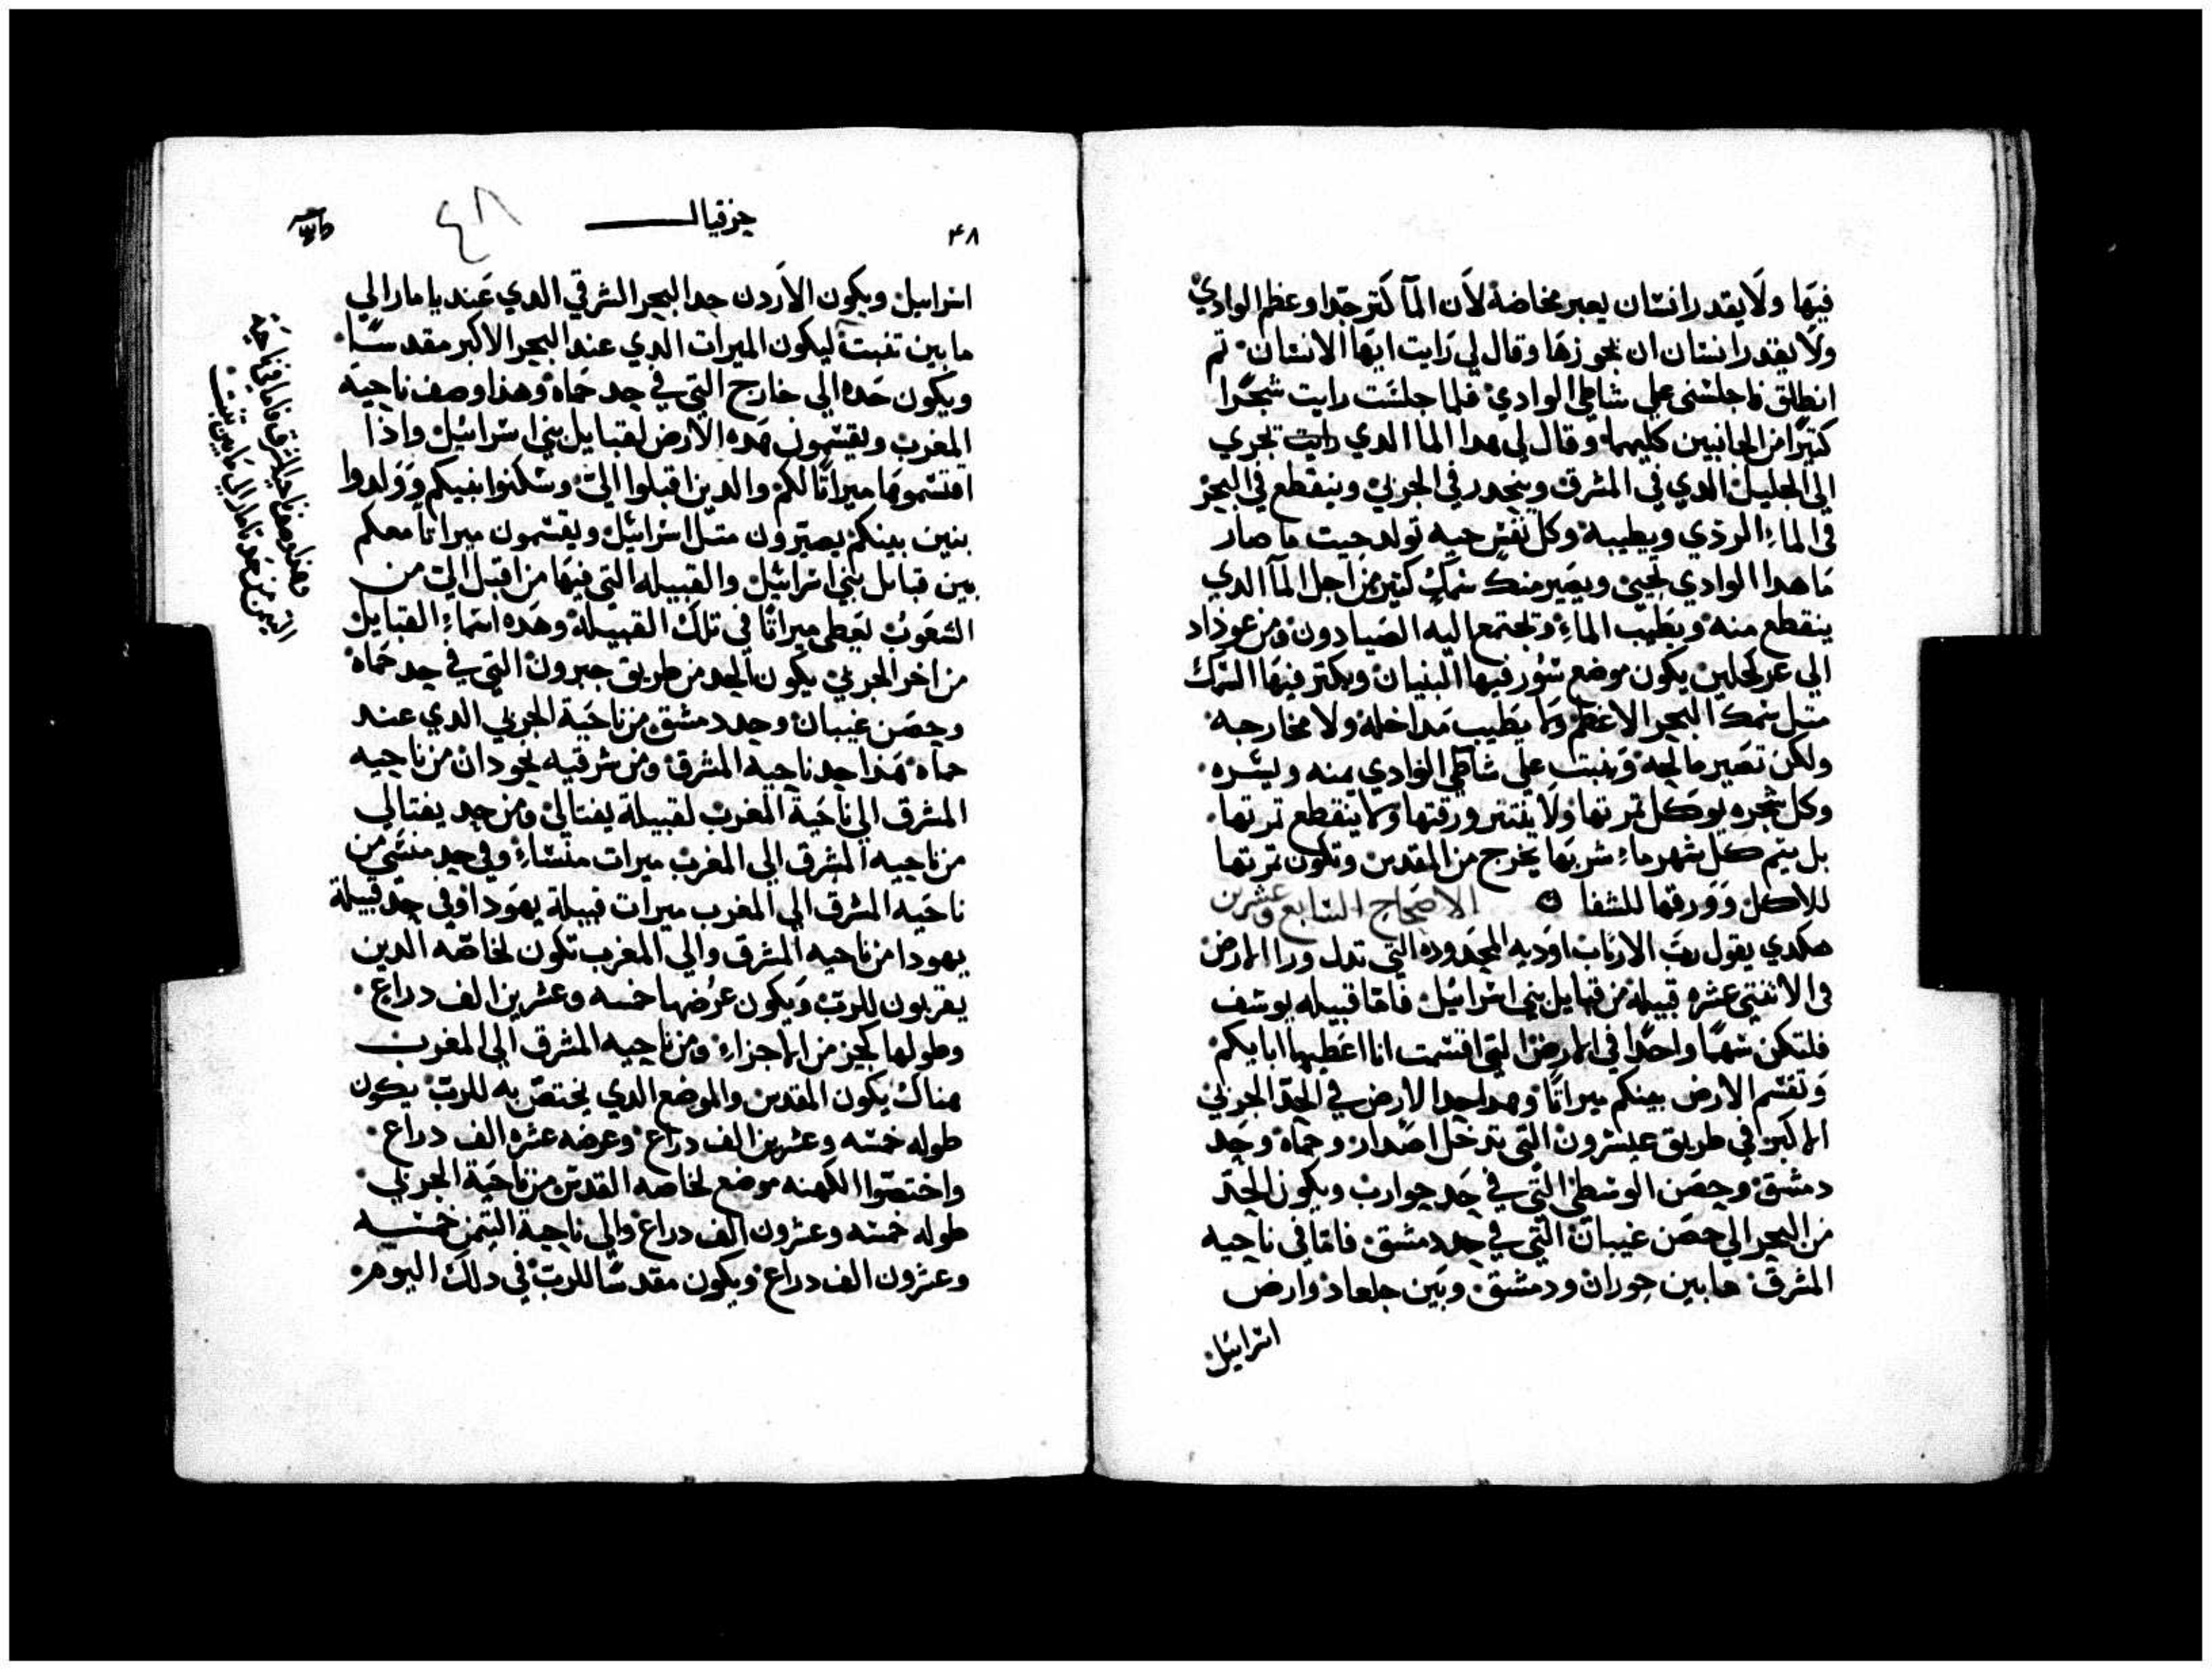 فيها ولا يقدر انسان يعبر مخاضة لان المآ كتر جدا وعظم الوادي
ولا يقدر انسان ان يجوزها وقال لي رايت ايها الانسان تم
انطلق فاجلسني علي شاطي الوادي فلما جلست رايت شجرا
كتيرا من الجانبين كليهما وقال لي هدا الما الدي رايت تجري
الي الجليل الدي في المشرق وينحدر في الجربي وينقطع في البحر
في الماء الردي ويطيبه وكل نفس حيه تولد حيت ما صار
ما هدا الوادي تحيي ويصير سمك كتير من اجل المآ الدي
ينقطع منه ويطيب الماء وتجتمع اليه الصيادون ومن عو داد
الي عر يكون موضع سور فيها البنيان ويكتر فيها السمك
متل سمك البحر الاعظم ولا يطيب مداخله ولا مخارجه
ولكن تصير مالحه وينبت علي شاطي الوادي يمنه ويسره
وكل شجره توكل تمرتها ولا ينتتر ورقتها ولا ينقطع تمرتها
بل يتم كل شهر ماء شربها يخرج من المقدس وتكون تمرتها
للاكل وورقها للشفا الاصحاح السابع وعشرين
هكدي يقول رب الارباب اوديه المحدوده التي تدل ورا الارض
في الاتنتي عشره قبيلة من قبايل بني اسرائيل فاما قبيله يوسف
فلتكن سهما واحدا في الارض التي اقسمت انا اعطيها ابايكم
وتقسم الارض بينكم ميراتا وهدا حد الارض في الحد الجربي
الاكبر في طريق التي تدخل اصدار وحماه وحد
دمشق وحصن الوسطي التي في حد جوارب ويكون الحد
من البحر الي حصن غيبان التي في حد دمشق فاما في ناحيه
المشرق ما بين حوران ودمشق وبين جلعاد وارض
اسراييل
٤٨
حزقيال
٤٨
اسراييل ويكون الاردن حد البحر الشرقي الدي عند يامار الي
مابين تنبت ليكون الميرات الدي عند البحر الاكبر مقدسا
ويكون حده الي خارج التي في حد حماه وهدا وصف ناحيه
المغرب ويقسمون هده الارض لقبايل بني اسرائيل وادا
اقتسموها ميراتا لكم والدين اقبلوا الي وسكنوا بنيكم وولدوا
بنين بينكم يصيرون متل اسرائيل ويقسمون ميراتا معكم
بين قبايل بني اسرائيل والقبيله التي فيها من اقبل الي من
الشعوب تعطي ميراتا في تلك القبيله وهده اسماء القبايل
من اخر الجربي يكون الحد من طريق حبرون التي في حد حماه
وحصن غيبان وحد دمشق من ناحية الجربي الدي عند
حماه هدا حد ناحية المشرق ومن شرقيه يحودان من ناحيه
المشرق الي ناحية المغرب لقبيلة يفتالي ومن حد يفتالي
من ناحيه المشرق الي المغرب ميرات منساء وفي حد منسي من
ناحيه المشرق الي المغرب ميرات قبيلة يهودا وفي حد قبيلة
يهودا من ناحيه المشرق والي المغرب تكون لخاصه الدين
يقربون للرب ويكون عرضها خمسه وعشرين الف دراع
وطولها كجز من الاجزاء ومن ناحيه المشرق الي المغرب
هناك يكون المقدس والموضع الدي يختص به للرب يكون
طوله خمسه وعشرين الف دراع وعرضه عشره الف دراع
واختصوا الكهنه موضع لخاصه القدس من ناحية الجربي
طوله خمسه وعشرون الف دراع والي ناحية التيمن خمسه
وعشرون الف دراع ويكون مقدسا للرب في دلك اليوم
وهدا وصف ناحية المشرق فاما في ناحية
التيمن من حد تامار الي ما بين تنبت